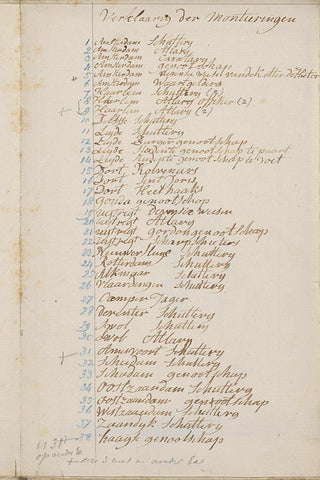 Verklaaring der Montieringen
1 Amsterdam Schuttery
2 Amsterdam Attlary
3 Amsterdam Cavelary
4 Amsterdam genootschap
5 Amsterdam
6 Amsterdam Waartgelders
7 Haarlem Schuttery (2)
8 Haarlem Attlary officier (2)
+ 9 Haarlem Attlary (2)
10 Schuttery
11 Lyde Schuttery
12 Lyde Burger genootschap
13 Lyde Studente genootschap te paart
14 Lyde Studente genootschap te voet
15 Dort
16 Dort Sint Joris
17 Dort Heelhaaks
18 Gouda genootschap
19 Uutregt wesen
20 Uutregt Attlary
21 Uutregt gordon genootschap
22 Uutregt Scharpschuters
23 Schuttery
24 Rotterdam Schuttery
25 Alkmaar Schuttery
26 Vlaardengen Schuttery
27 Camper Jager
28 Deventer Schuttery
29 Swol Schuttery
30 Swol Attlary
+ 31 Amersvoort Schuttery
32 Schiedam Schuttery
33 Schiedam genootschap
34 Oostzaandam Schuttery
35 Oostzaandam genootschap
36 Westzaandam Schuttery
37 Zaandyk Schuttery
38 haagk genootschap